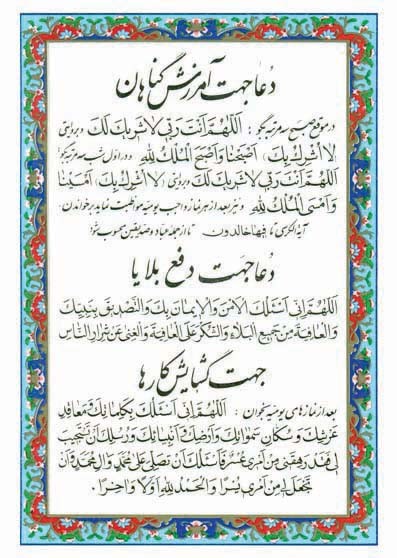 دعا جهت آمرزش گناهان
در موقع صبح سه مرتبه بگو : اَللّهُمَّ اَنْتَ رَبّي لا شَريكَ لَكَ و بروایتی
(لا اُشْرِكُ بِكَ) اَصْبَحْنا وَاَصْبَحَ الْمُلْكُ لِلّهِ و در اول شب سه مرتبه بگو :
اَللّهُمَّ اَنْتَ رَبّي لا شَريكَ لَكَ و بروایتی (لا اُشْرِكُ بِكَ) اَمْسَيْنا
وَاَمْسَى الْمُلْكُ لِلّهِ و نیز بعد از هر نماز واجب یومیه مواظبت نماید بر خواندن
آیة الکرسی تا فیها خالدون تا از جمله عباد و صدیقین محسوب شود
دعا جهت دفع بلایا
اَللّهُمَّ اِنّي اَسْئَلُكَ الْاَمْنَ وَالْايمانَ بِكَ وَالتَّصْديقَ بِنَبِيِّكَ
وَالْعافِيَةَ مِنْ جَميعِ الْبَلاءِ وَالشُّكْرَ عَلَى الْعافِيَةِ وَالْغِنى عَنْ شِرارِ النّاسِ
جهت گشایش کارها
بعد از نمازهای یومیه بخوان : اَللّهُمَّ اِنّي اَسْئَلُكَ بِكَلِماتِكَ وَمَعاقِدِ
عَرْشِكَ وَسُكّانِ سَمواتِكَ وَاَرْضِكَ وَاَنْبِيائِكَ وَرُسُلِكَ اَنْ تَسْتَجيبَ
لي فَقَدْ رَهِقَني مِنْ اَمْري عُسْرٌ فَاَسْئَلُكَ اَنْ تُصَلِّيَ عَلى مُحَمَّدٍ وَالِ مُحَمَّدٍ وَاَنْ
تَجْعَلَ لي مِنْ اَمْري يُسْراً وَالْحَمْدُ لِلّهِ اَوَّلاً وَاخِراً .